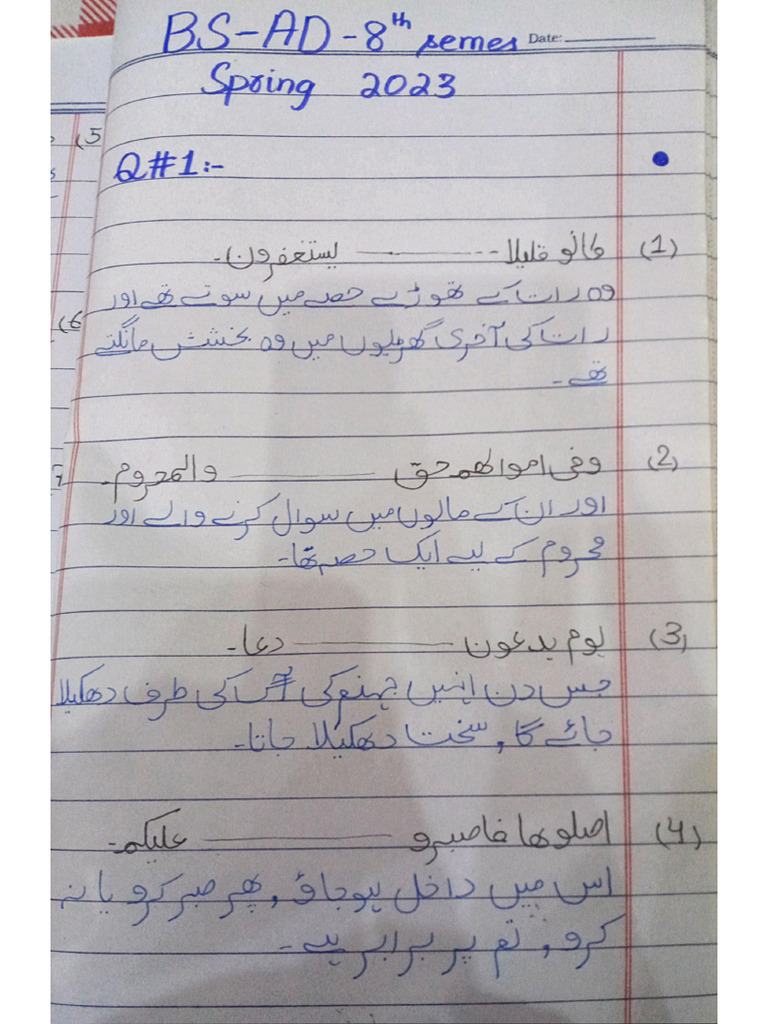 BS-AD-8th semes Date:
Spring 2023
Q#1:-
(1) کانو قلیلا ——— یستغفرون۔
وہ رات کے تھوڑے حصے میں سوتے تھے اور
رات کی آخری گھڑیوں میں وہ بخشش مانگتے
تھے۔
(2) وفی اموالھم حق ——— والمحروم۔
اور ان کے مالوں میں سوال کرنے والے اور
محروم کے لیے ایک حصہ تھا۔
(3) یوم یدعون ——— دعا۔
جس دن انہیں جہنم کی آگ کی طرف دھکیلا
جائے گا، سخت دھکیلا جانا۔
(4) اصلوھا فاصبرو ——— علیکم۔
اس میں داخل ہوجاؤ، پھر صبر کرو یا نہ
کرو، تم پر برابر ہے۔
(5
(6